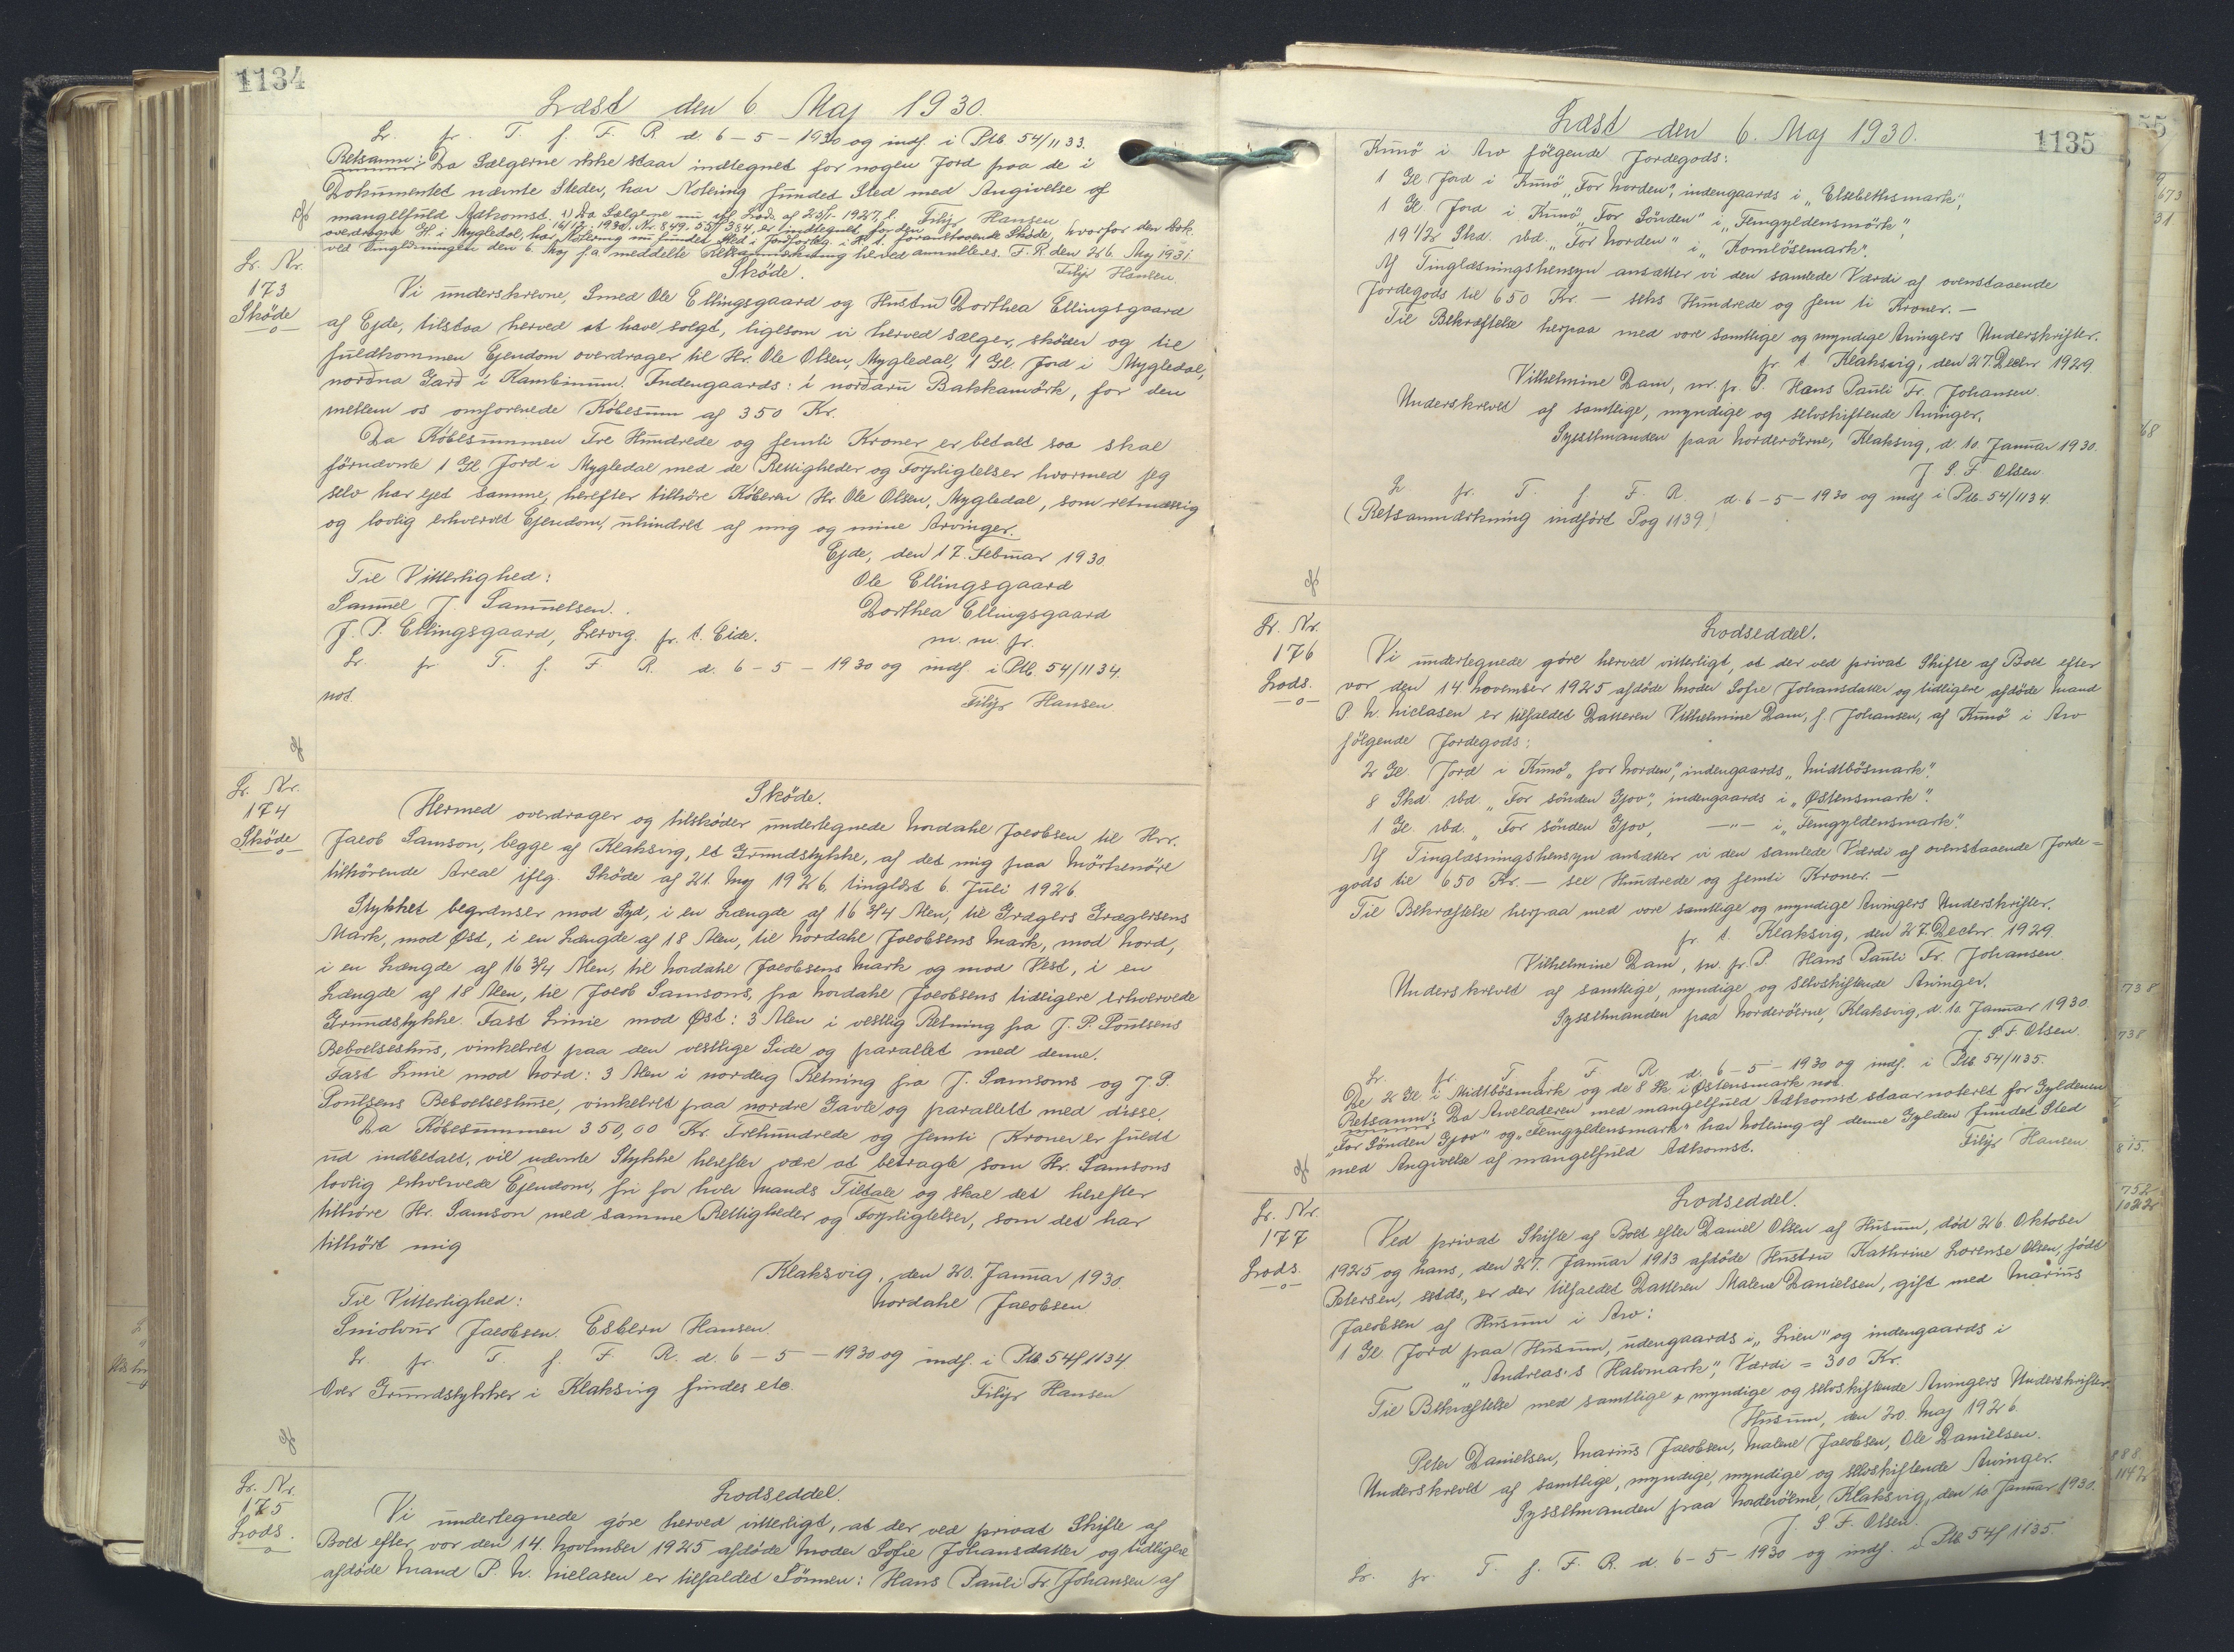 1134
Læst den 6 Maj 1930.
Lr. fr. T. f. F. R. d 6-5-1930 og indf. i Ptb. 54/1133.
Retsanm: Da Sælgerne ikke staar indtegnet for nogen Jord paa de i
Dokumentet nævnte Steder, har Notering fundet Sted med Angivelse af
mangelfuld Adkomst. Filip Hansen
1) Da Sælgerne nu iflg. Lods. af 25/- 1927, l.
16/12 1930, Nr. 849. 55/384, er indtegnet for den
overdragne Gl. i Mygledal, har Notering nu fundet Sted i Jordfortg. i H. t. foranstaaende Skøde, hvorfor den Dok.
ved Tinglæsningen den 6. Maj f.a. meddelte Retsanmærkning herved annulleres. F. R. den 26. Maj 1931.
Filip Hansen
Lr. Nr.
173
Sköde
Sköde.
Vi underskrevne, Smed Ole Ellingsgaard og Hustru Dorthea Ellingsgaard
af Ejde, tilstaa herved at have solgt, ligesom vi herved sælger, sköder og til
fuldkommen Ejendom overdrager til Hr. Ole Olsen, Mygledal, 1 Gl. Jord i Mygledal,
norðna Garð i Kambinum. Indengaards: i norðaru Bakkamörk, for den
mellem os omforenede Köbesum af 350 Kr.
Da Köbesummen Tre Hundrede og femti Kroner er betalt saa skal
förnævnte 1 Gl. Jord i Mygledal med de Rettigheder og Forpligtelser hvormed jeg
selv har ejet samme, herefter tilhöre Köberen Hr. Ole Olsen, Mygledal, som retmæssig
og lovlig erhvervet Ejendom, uhindret af mig og mine Arvinger.
Ejde, den 17. Februar 1930.
Til Vitterlighed: Ole Ellingsgaard
Samuel J. Samuelsen. Dorthea Ellingsgaard
J. P. Ellingsgaard, Lervig. fr. t. Eide. m. m. fr.
Lr. fr. T. f. F. R. d. 6-5-1930 og indf. i Ptb. 54/1134.
not. Filip Hansen
Lr. Nr.
174
Sköde
Sköde.
Hermed overdrager og tilsköder undertegnede Nordahl Jacobsen til Hrr.
Jacob Samson, begge af Klaksvig, et Grundstykke, af det mig paa Mörkenöre
tilhörende Areal iflg. Sköde af 21. Maj 1926, tinglæst 6. Juli 1926.
Stykket begrænser mod Syd, i en Længde af 16 3/4 Alen, til Grægers Grægersens
Mark, mod Øst, i en Længde af 18 Alen, til Nordahl Jacobsens Mark, mod Nord,
i en Længde af 16 3/4 Alen, til Nordahl Jacobsens Mark og mod Vest, i en
Længde af 18 Alen, til Jacob Samsons, fra Nordahl Jacobsens tidligere erhvervede
Grundstykke. Fast Linie mod Øst: 3 Alen i vestlig Retning fra J. P. Poulsens
Beboelseshus, vinkelret paa den vestlige Side og parallet med denne.
Fast Linie mod Nord: 3 Alen i nordlig Retning fra J. Samsons og J. P.
Poulsens Beboelseshuse, vinkelret paa nordre Gavle og parallelt med disse.
Da Köbesummen 350,00 Kr. Trehundrede og femti Kroner er fuldt
ud indbetalt, vil nævnte Stykke herefter være at betragte som Hr. Samsons
lovlig erhvervede Ejendom, fri for hver Mands Tiltale og skal det herefter
tilhöre Hr. Samson med samme Rettigheder og Forpligtelser, som det har
tilhört mig
Klaksvig, den 20. Januar 1930.
Til Vitterlighed: Nordahl Jacobsen
Sniolvur Jacobsen. Esbern Hansen.
Lr. fr. T. f. F. R. d. 6-5-1930 og indf. i Ptb. 54/1134.
Over Grundstykker i Klaksvig findes etc. Filip Hansen
Lr. Nr.
175
Lods.
Lodseddel.
Vi undertegnede göre herved vitterligt, at der ved privat Skifte af
Boet efter vor den 14. November 1925 afdöde Moder Sofie Johansdatter og tidligere
afdöde Mand P. N. Nielasen er tilfaldet Sönnen: Hans Pauli Fr. Johansen af
1135
Læst den 6. Maj 1930.
Kunö i Arv fölgende Jordegods:
1 Gl. Jord i Kunö „For Norden", indengaards i „Elsebethsmark",
1 Gl. Jord i Kunö „For Sönden" i „Femgyldensmörk",
19 1/2 Skd. sbd. „For Norden" i „Komlösemark".
Af Tinglæsningshensyn ansætter vi den samlede Værdi af ovenstaaende
Jordegods til 650 Kr. — seks Hundrede og fem ti Kroner. —
Til Bekræftelse herpaa med vore samtlige og myndige Arvingers Underskrifter.
fr. t. Klaksvig, den 27. Decbr 1929.
Vilhelmine Dam, m. fr. P. Hans Pauli Fr. Johansen.
Underskrevet af samtlige, myndige og selvskiftende Arvinger.
Sysselmanden paa Norderöerne, Klaksvig, d. 10 Januar 1930.
J. S. F. Olsen.
Lr fr. T. f. F. R. d. 6-5-1930 og indf. i Ptb. 54/1134.
(Retsanmærkning indfört Pag 1139)
Lr. Nr.
176
Lods.
Lodseddel.
Vi undertegnede göre herved vitterligt, at der ved privat Skifte af Boet efter
vor den 14 November 1925 afdöde Moder Sofie Johansdatter og tidligere afdöde Mand
P. N. Nielasen er tilfaldet Datteren Vilhelmine Dam, f. Johansen, af Kunö i Arv
fölgende Jordegods:
2 Gl. Jord i Kunö „for Norden", indengaards „Midtbösmark".
8 Skd. sbd. „For sönden Gjov", indengaards i „Østensmark".
1 Gl. sbd. „For sönden Gjov, —"— i „Femgyldensmark".
Af Tinglæsningshensyn ansætter vi den samlede Værdi af ovenstaaende Jorde=
gods til 650 Kr. — sex Hundrede og femti Kroner. —
Til Bekræftelse herpaa med vore samtlige og myndige Arvingers Underskrifter.
fr. t. Klaksvig, den 27. Decbr. 1929.
Vilhelmine Dam, m. fr. P. Hans Pauli Fr. Johansen.
Underskrevet af samtlige, myndige og selvskiftende Arvinger.
Sysselmanden paa Norderöerne, Klaksvig, d. 10. Januar 1930
J. S. F. Olsen.
Lr. fr. T. f. F. R. d. 6-5-1930 og indf. i Ptb. 54/1135.
De 2 Gl. i Midtbösmark og de 8 Sk. i Østensmark not.
Retsanm: Da Arveladeren med mangelfuld Adkomst staar noteret for Gyldenen
„For Sönden Gjov" og „Femgyldensmark" har Notering af denne Gylden fundet Sted
med Angivelse af mangelfuld Adkomst. Filip Hansen
Lr. Nr.
177
Lods.
Lodseddel.
Ved privat Skifte af Boet efter Daniel Olsen af Husum, död 26. Oktober
1925 og hans, den 27. Januar 1913 afdöde Hustru Kathrine Lorense Olsen, födt
Petersen, sstds., er der tilfaldet Datteren Malene Danielsen, gift med Marius
Jacobsen af Husum i Arv:
1 Gl. Jord paa Husum, udengaards i „Lien" og indengaards i
„Andreas's Halvmark", Værdi = 300 Kr.
Til Bekræftelse med samtlige + myndige og selvskiftende Arvingers Underskrifter.
Husum, den 20. Maj 1926.
Peter Danielsen, Marius Jacobsen, Malene Jacobsen, Ole Danielsen.
Underskrevet af samtlige, myndige, myndige og selvskiftende Arvinger.
Sysselmanden paa Norderöerne, Klaksvig, den 10 Januar 1930.
J. S. F. Olsen.
Lr. fr. T. f. F. R. d. 6-5-1930 og indf. i Ptb. 54/1135.